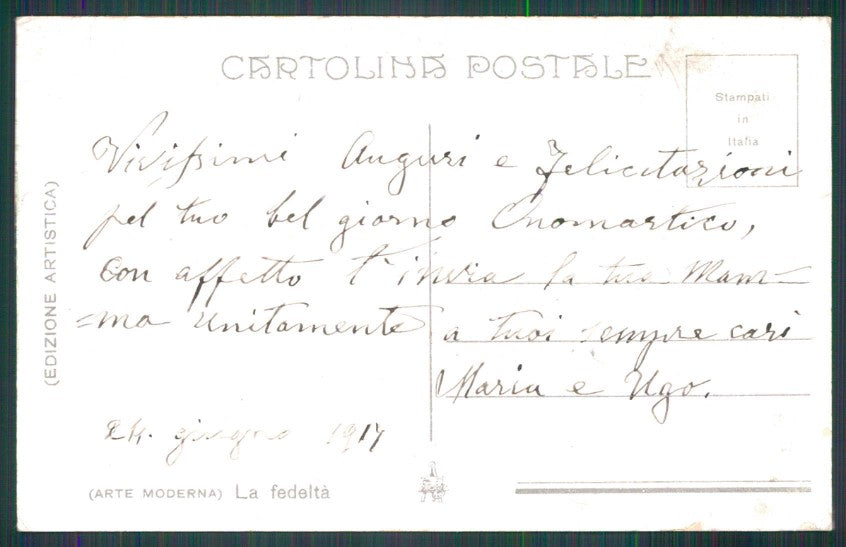 CARTOLINA POSTALE
Stampati
in
Italia
Vivissimi Auguri e Felicitazioni
pel tuo bel giorno Onomastico,
con affetto t'invia la tua Mam=
=ma unitamente a tuoi sempre cari
Maria e Ugo.
24. giugno 1917
(EDIZIONE ARTISTICA)
(ARTE MODERNA) La fedeltà